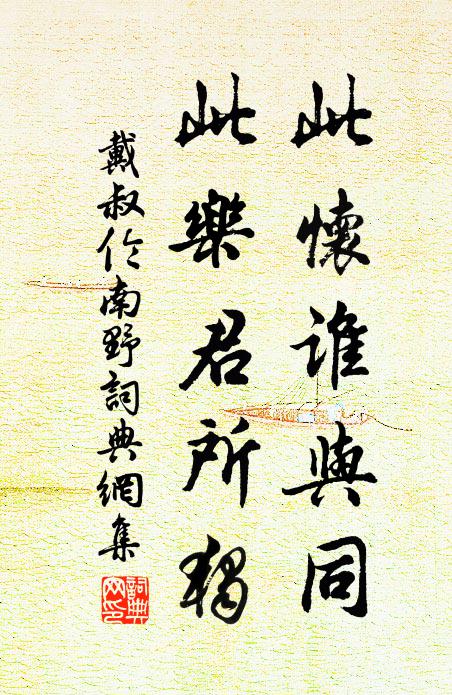 此懷誰與同
此樂君所獨
戴叔伦南野詞典網集
詞典
网印